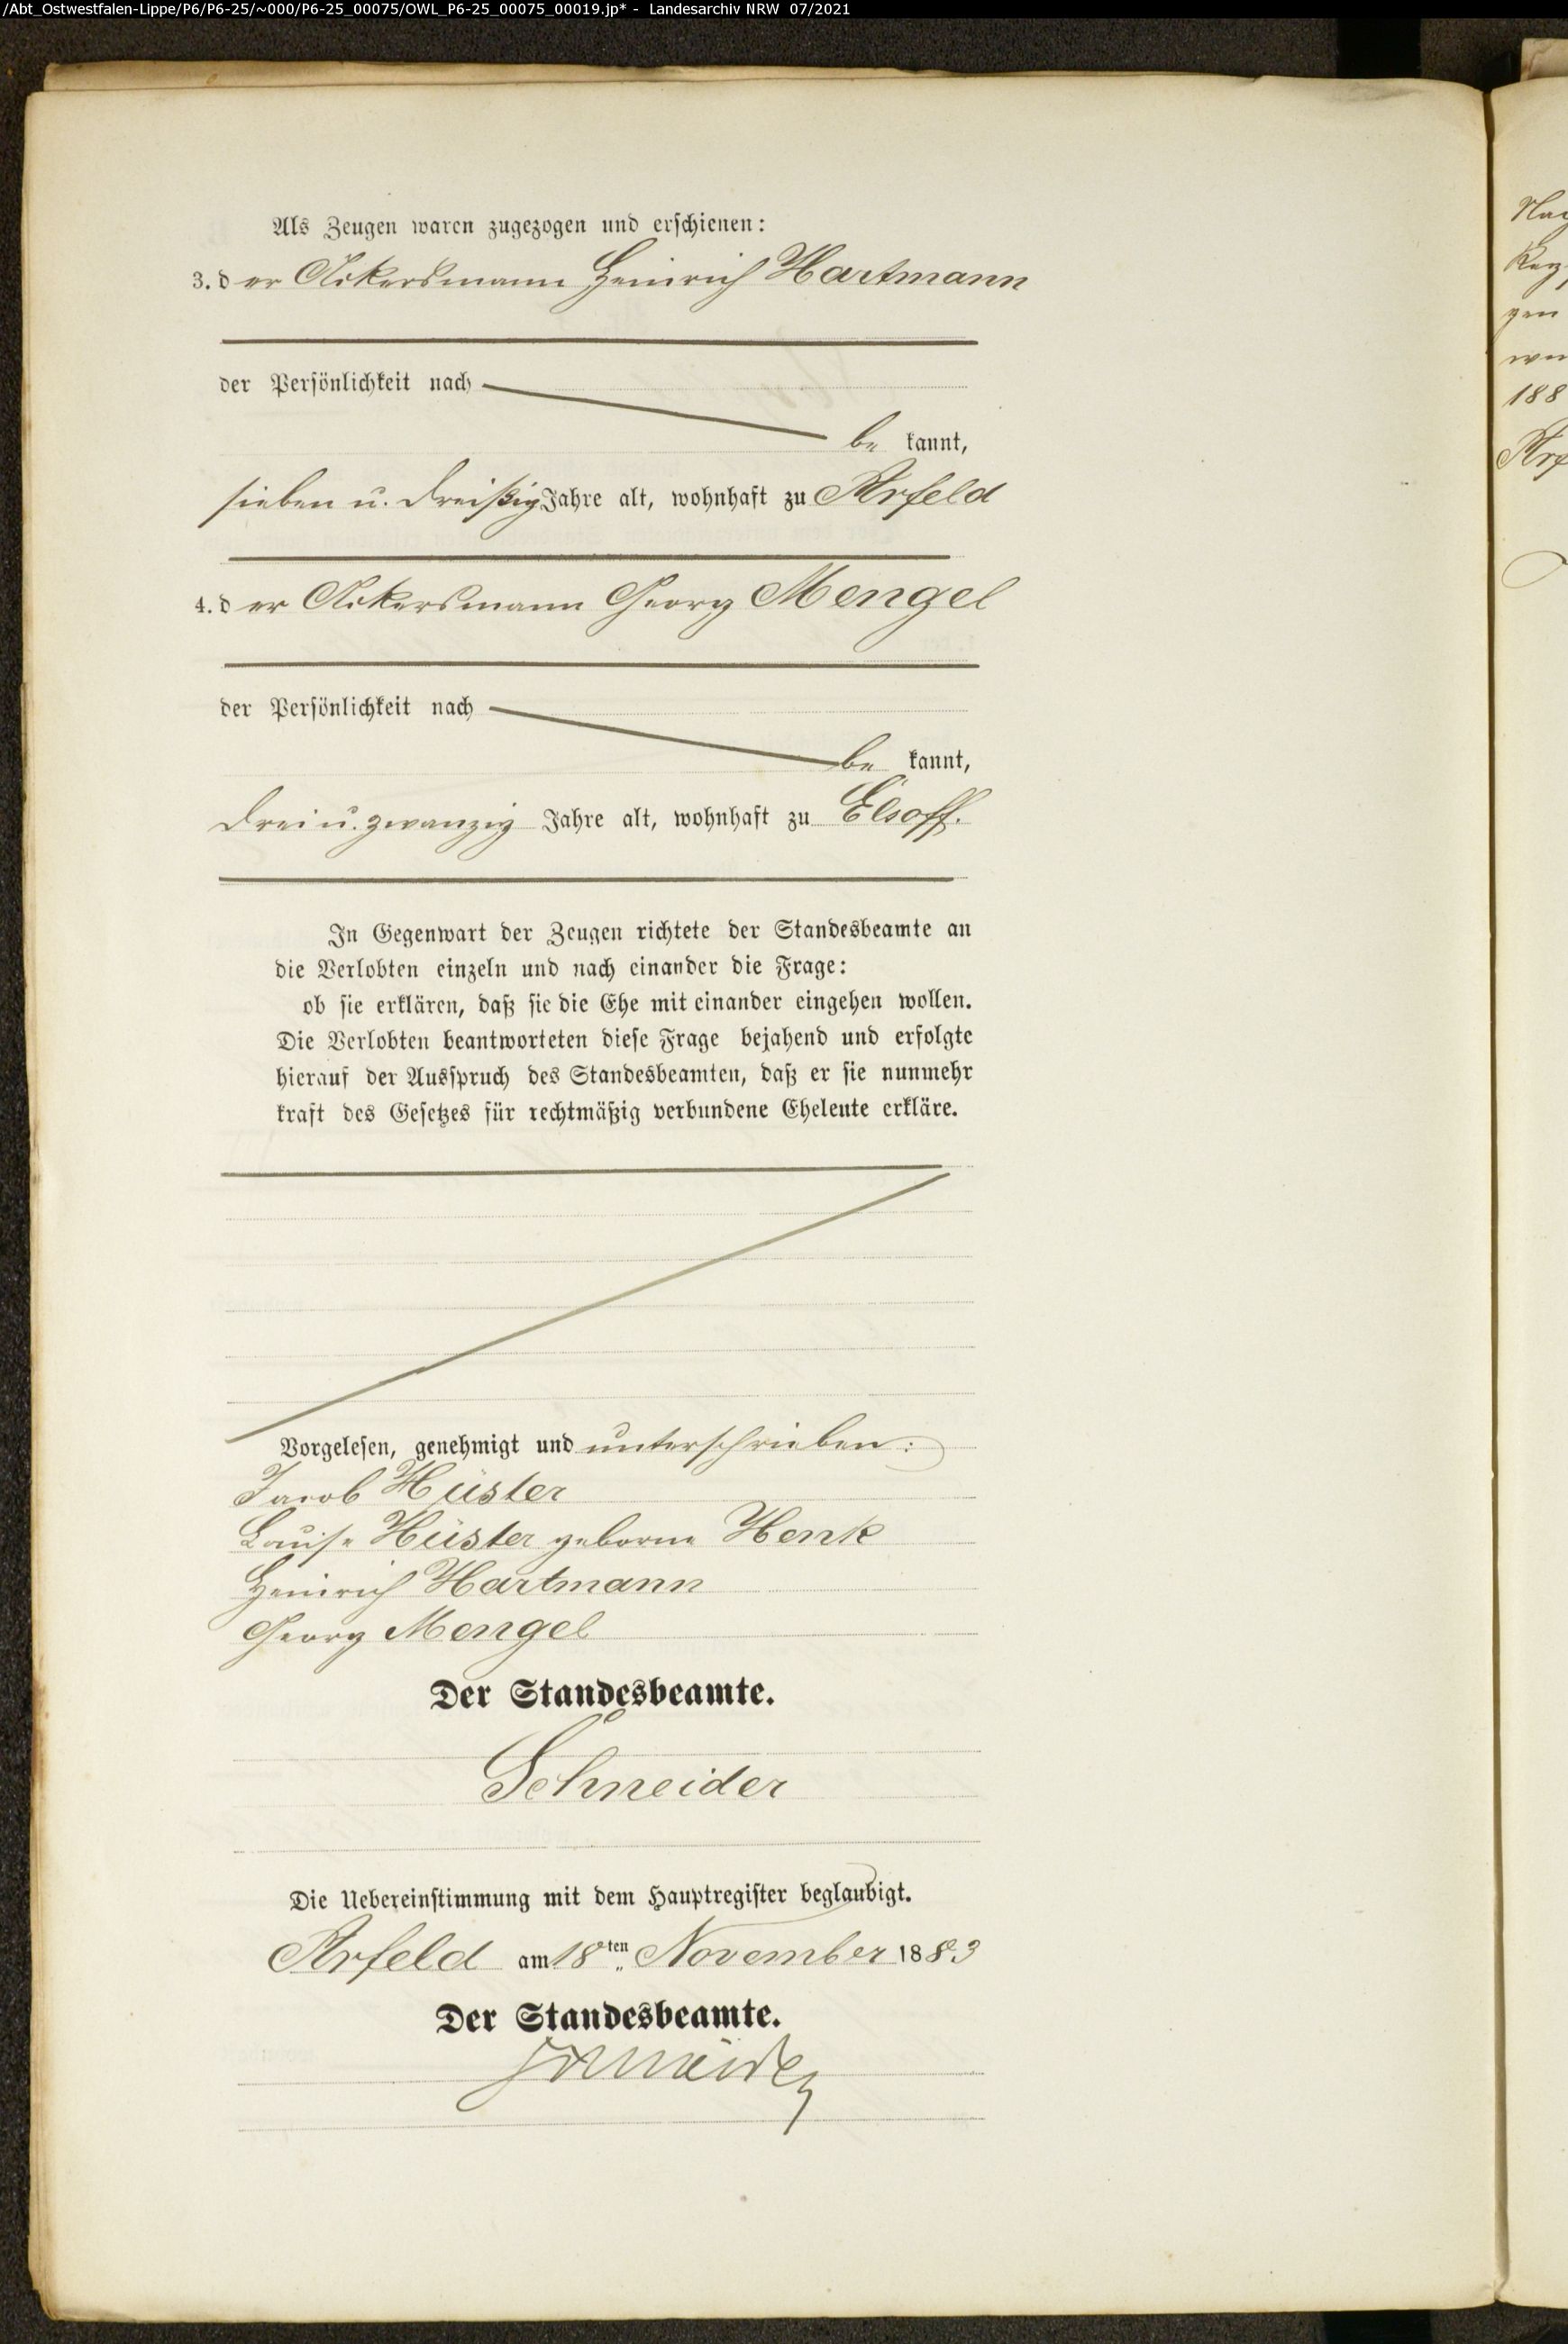 /Abt_Ostwestfalen-Lippe/P6/P6-25/~000/P6-25_00075/OWL_P6-25_00075_00019.jp* - Landesarchiv NRW 07/2021
Als Zeugen waren zugezogen und erschienen:
3. der Ackersmann Heinrich Hartmann
der Persönlichkeit nach
bekannt,
sieben u. dreißig Jahre alt, wohnhaft zu Arfeld
4. der Ackersmann Georg Mengel
der Persönlichkeit nach
bekannt,
drei u. zwanzig Jahre alt, wohnhaft zu Elsoff.
In Gegenwart der Zeugen richtete der Standesbeamte an
die Verlobten einzeln und nach einander die Frage:
ob sie erklären, daß sie die Ehe mit einander eingehen wollen.
Die Verlobten beantworteten diese Frage bejahend und erfolgte
hierauf der Ausspruch des Standesbeamten, daß er sie nunmehr
kraft des Gesetzes für rechtmäßig verbundene Eheleute erkläre.
Vorgelesen, genehmigt und unterschrieben:
Jacob Hüster
Louise Hüster geborne Henk
Heinrich Hartmann
Georg Mengel
Der Standesbeamte.
Schneider
Die Uebereinstimmung mit dem Hauptregister beglaubigt.
Arfeld am 18ten November 1883
Der Standesbeamte.
Schneider
gen
188